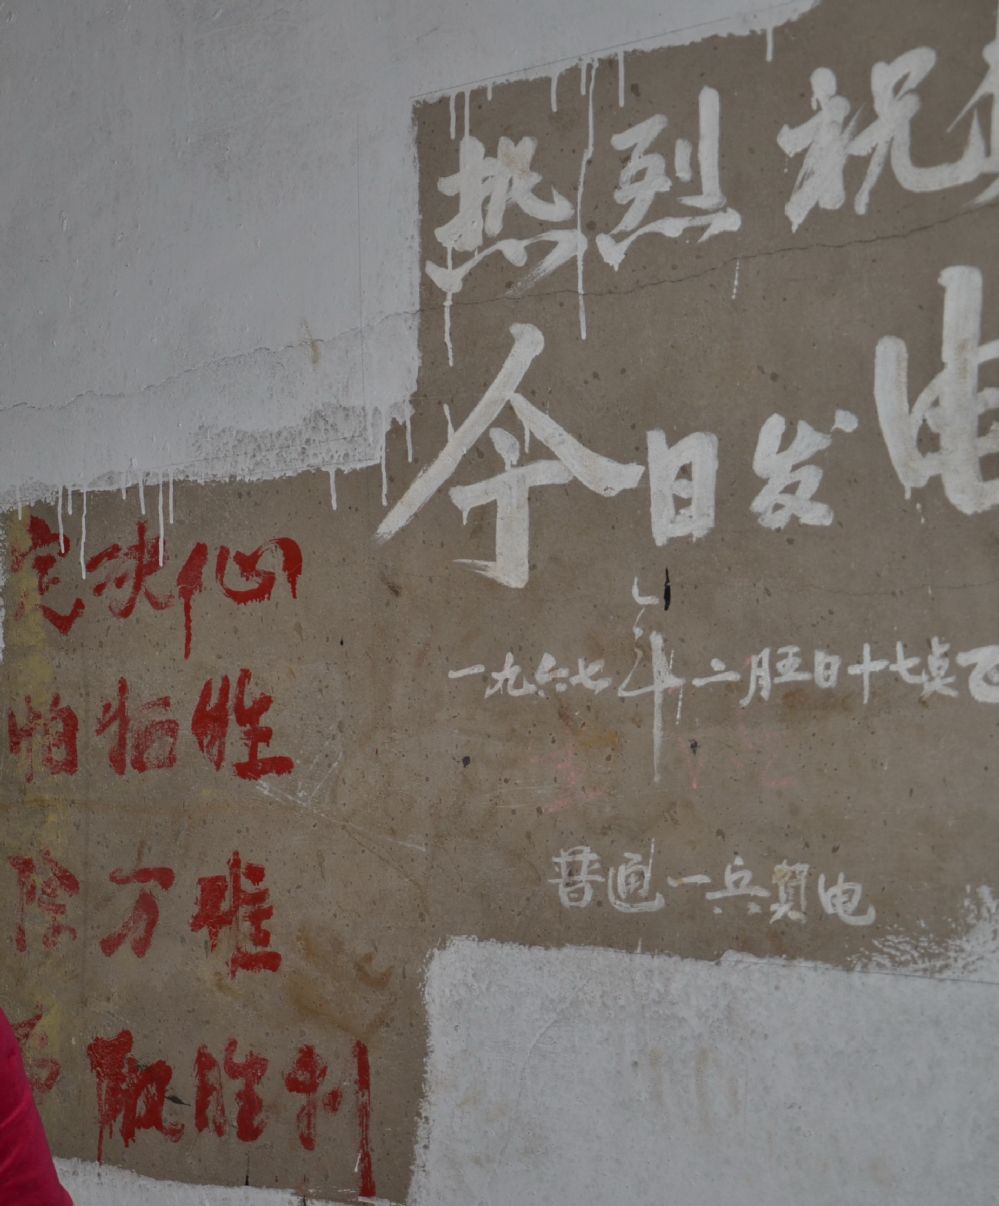 热烈祝
今日发电
一九六七年二月五日十七点
普通一兵贺电
定决心
怕牺牲
除万难
争取胜利